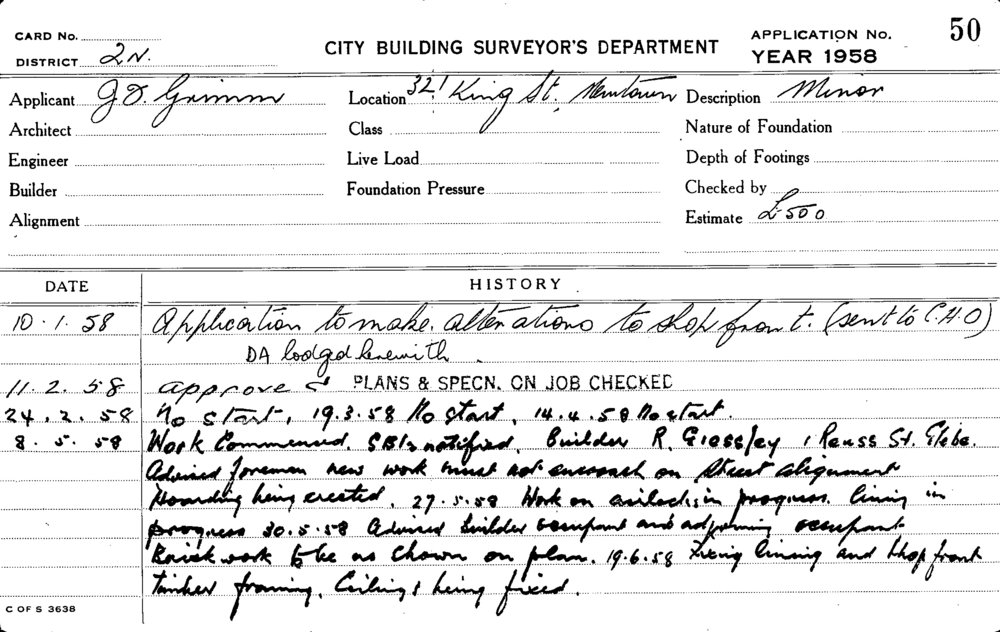 CARD No.
DISTRICT 2N.
CITY BUILDING SURVEYOR'S DEPARTMENT
APPLICATION No. 50
YEAR 1958
Applicant J D. Grimm
Location 321 King St. Newtown
Description Minor
Architect
Class
Nature of Foundation
Engineer
Live Load
Depth of Footings
Builder
Foundation Pressure
Checked by
Alignment
Estimate £500
DATE HISTORY
10.1.58 Application to make alterations to shop front. (sent to C.H.O)
DA lodged herewith.
11.2.58 approved PLANS & SPECN. ON JOB CHECKED
24.2.58 No start, 19.3.58 No start, 14.4.58 No start.
8.5.58 Work Commenced. SBI notified. Builder R. 1 Reuss St. Glebe.
Advised foreman new work must not encroach on Street alignment
Hoarding being erected. 27.5.58 Work on in progress. lining in
progress 30.5.58 Advised builder occupant and adjoining occupant
Brickwork to be as shown on plan. 19.6.58 Fixing lining and shop front
timber framing, Ceilings being fixed.
C OF S 3638